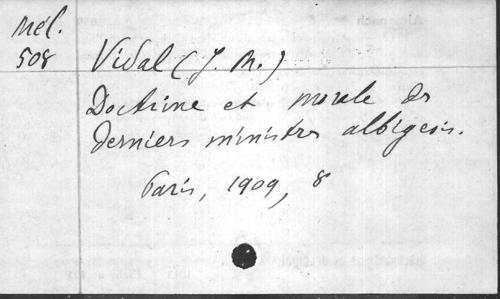 Mél.
508
Vidal (J. M.)
Doctrine et morale des
derniers ministres albigeois.
Paris, 1909, 8